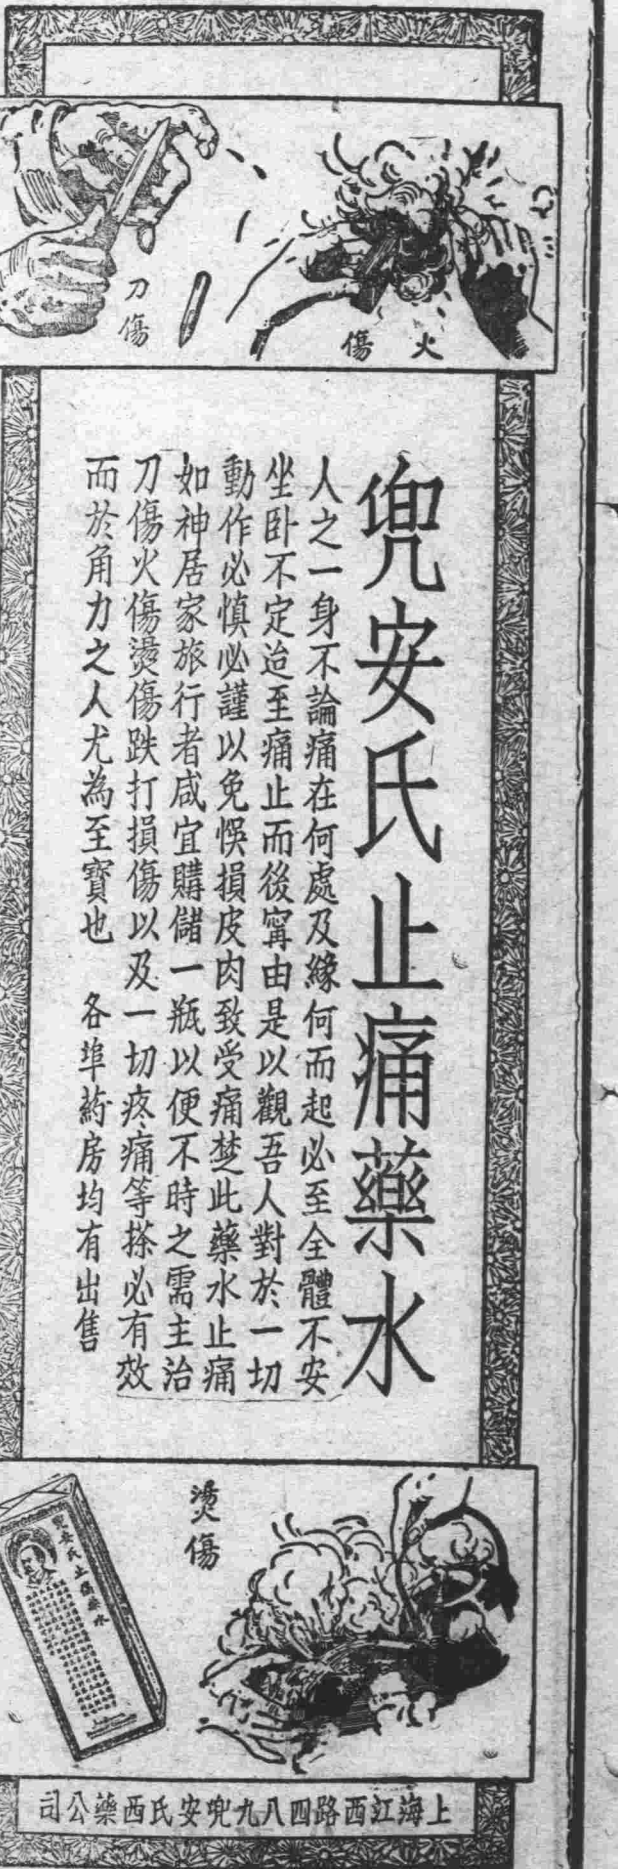 火傷
刀傷
兜安氏止痛藥水
人之一身不論痛在何處及緣何而起必至全體不安
坐卧不定迨至痛止而後寗由是以觀吾人對於一切
動作必慎必謹以免悞損皮肉致受痛楚此藥水止痛
如神居家旅行者咸宜購儲一瓶以便不時之需主治
刀傷火傷燙傷跌打損傷以及一切疼痛等搽必有效
而於角力之人尤為至寳也　各埠葯房均有出售
燙傷
兜安氏止痛藥水
上海江西路四八九兜安氏西藥公司